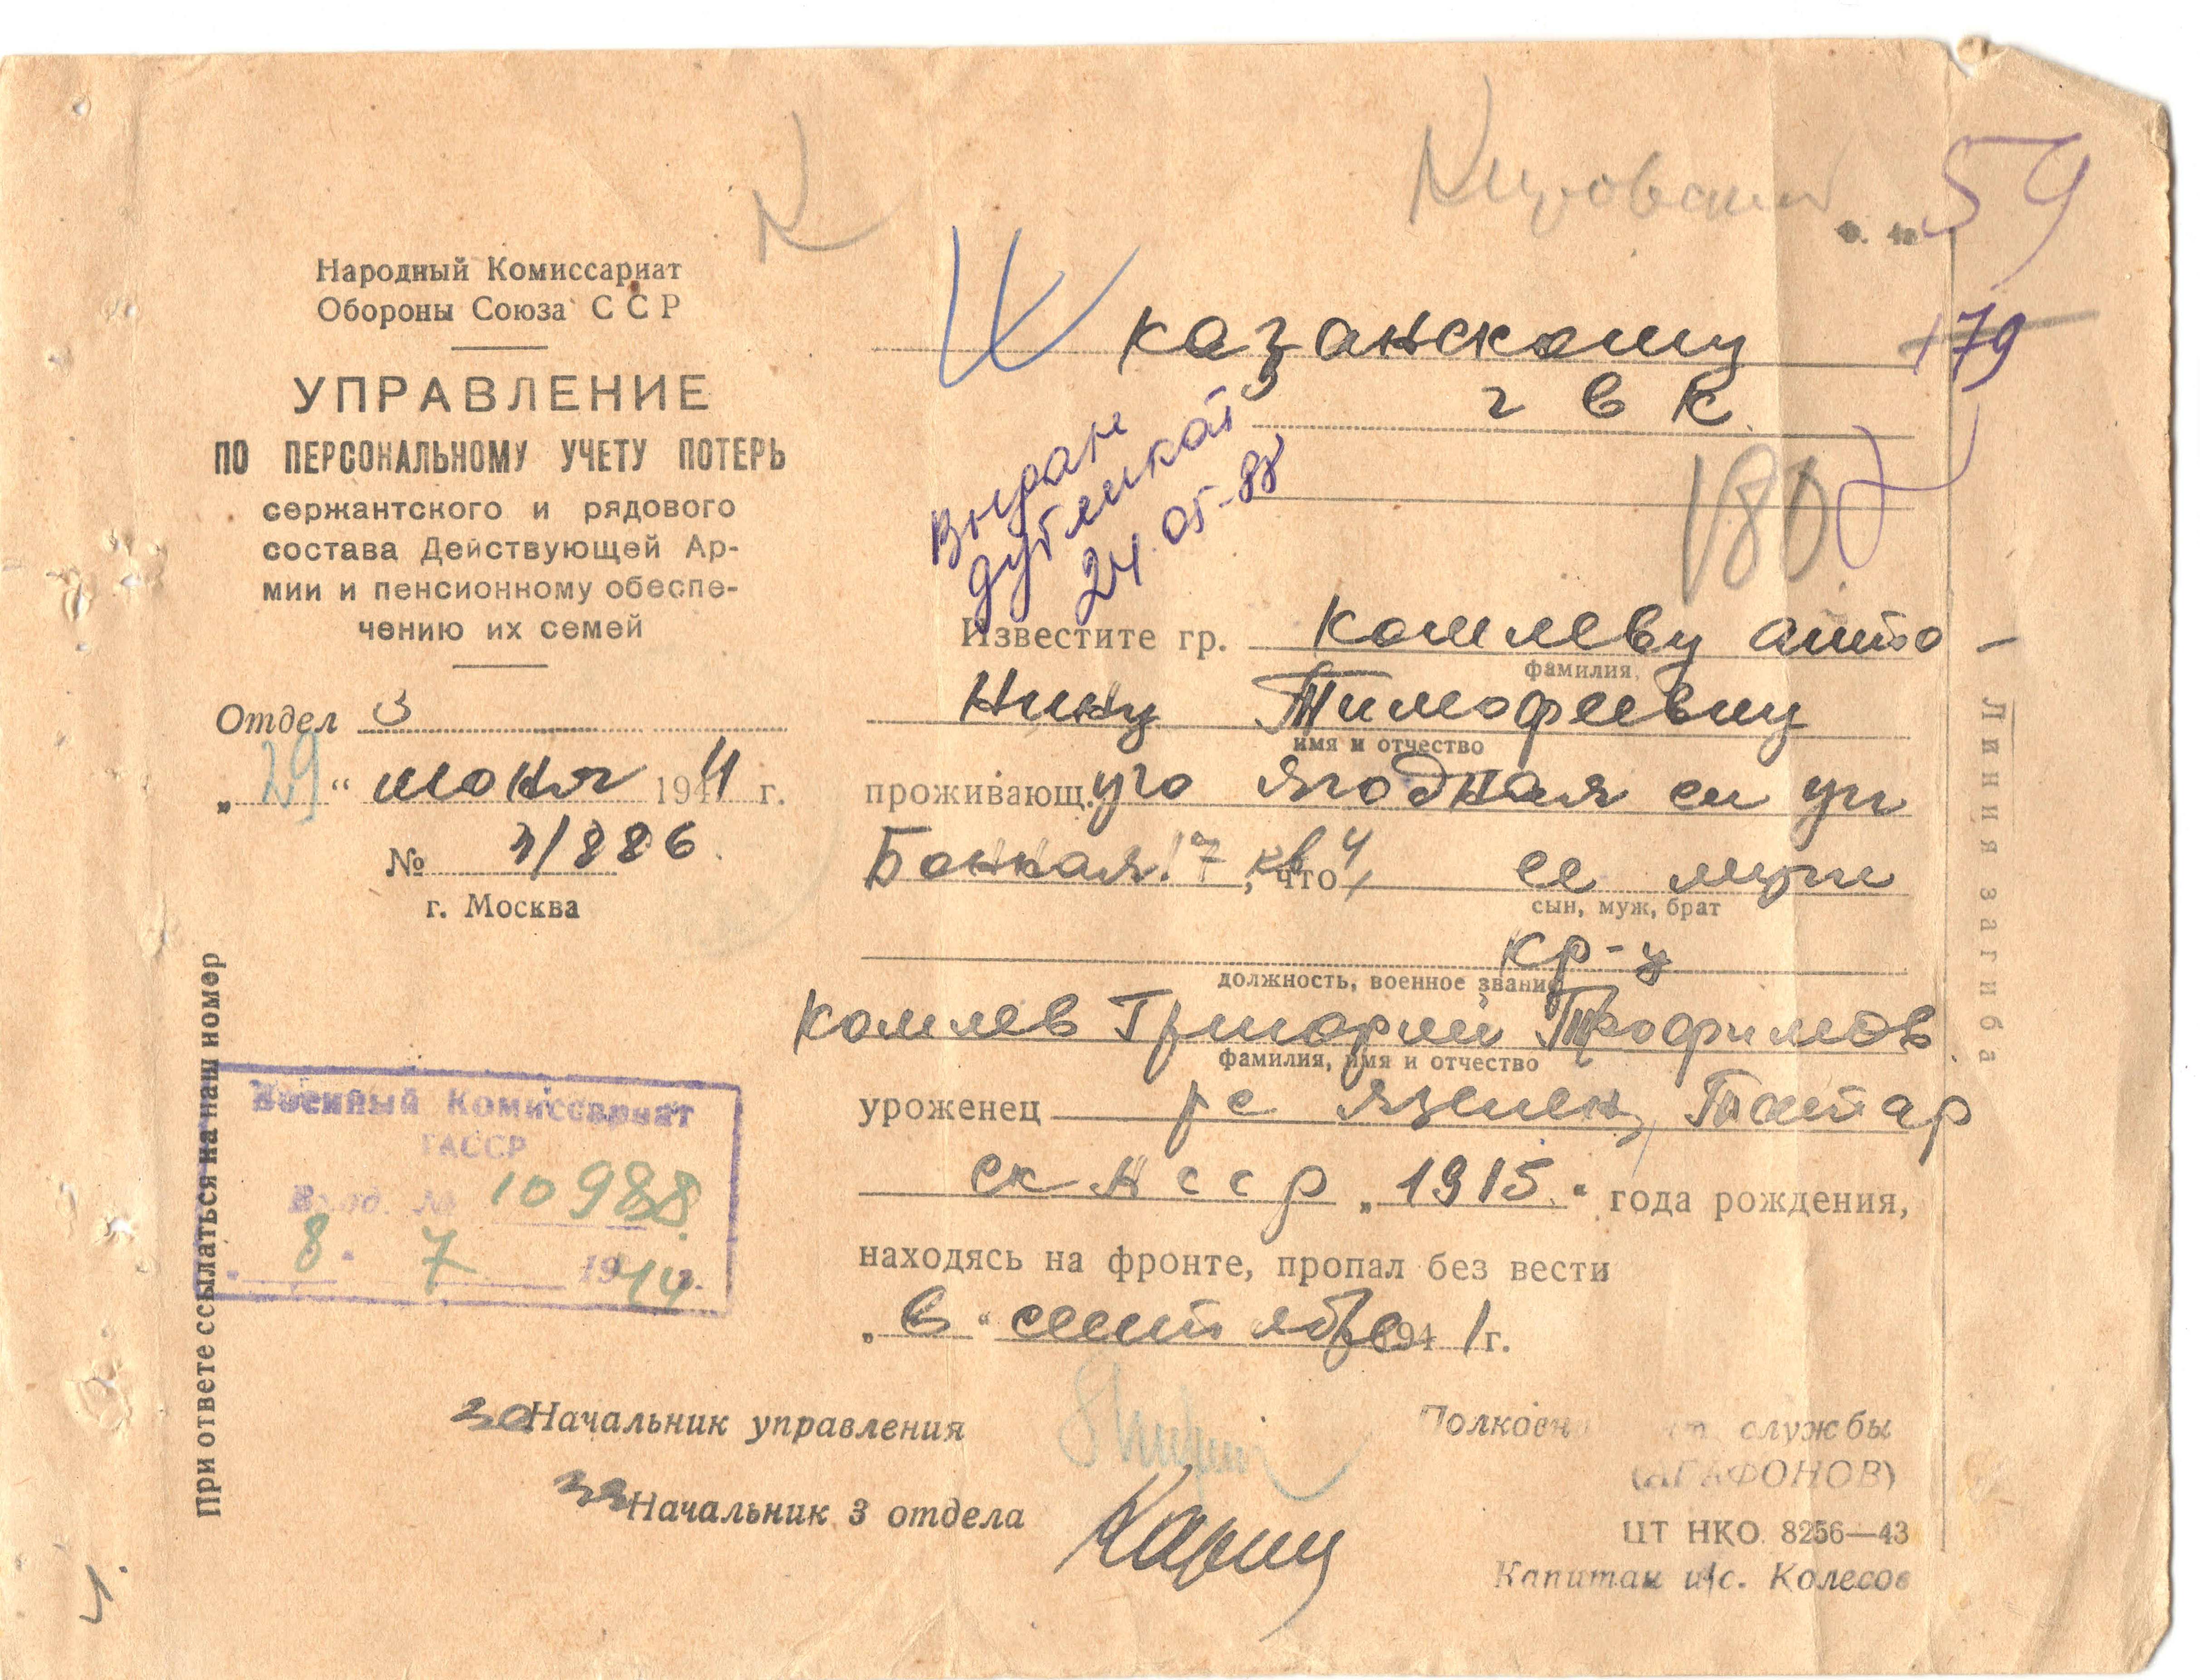 Кировский
59
Народный Комиссариат
Обороны Союза ССР
УПРАВЛЕНИЕ
ПО ПЕРСОНАЛЬНОМУ УЧЕТУ ПОТЕРЬ
сержантского и рядового
состава Действующей Ар-
мии и пенсионному обеспе-
чению их семей
Отдел 3
„29“ июня 1944 г.
№ 3/886
г. Москва
При ответе ссылаться на наш номер
Военный Комиссариат
ТАССР
Вход. № 10988
8. 7 1944 г.
Казанскому
179
г в к
180
Выдан
дубликат
24.05-88
Известите гр. Комлеву Анто-
фамилия,
нину Тимофеевну
имя и отчество
проживающ.ую Ягодная сл ул
Бонная 17, кв 4, что ее муж
сын, муж, брат
кр-ц
должность, военное звание
Комлев Григорий Трофимов
фамилия, имя и отчество
уроженец Татар
ск АССР „1915“ года рождения,
находясь на фронте, пропал без вести
„в“ сентябре 1941 г.
Начальник управления
Полковн инт. службы
(АГАФОНОВ)
Начальник 3 отдела
ЦТ НКО 8256—43
Капитан и/с. Колесов
Линия загиба